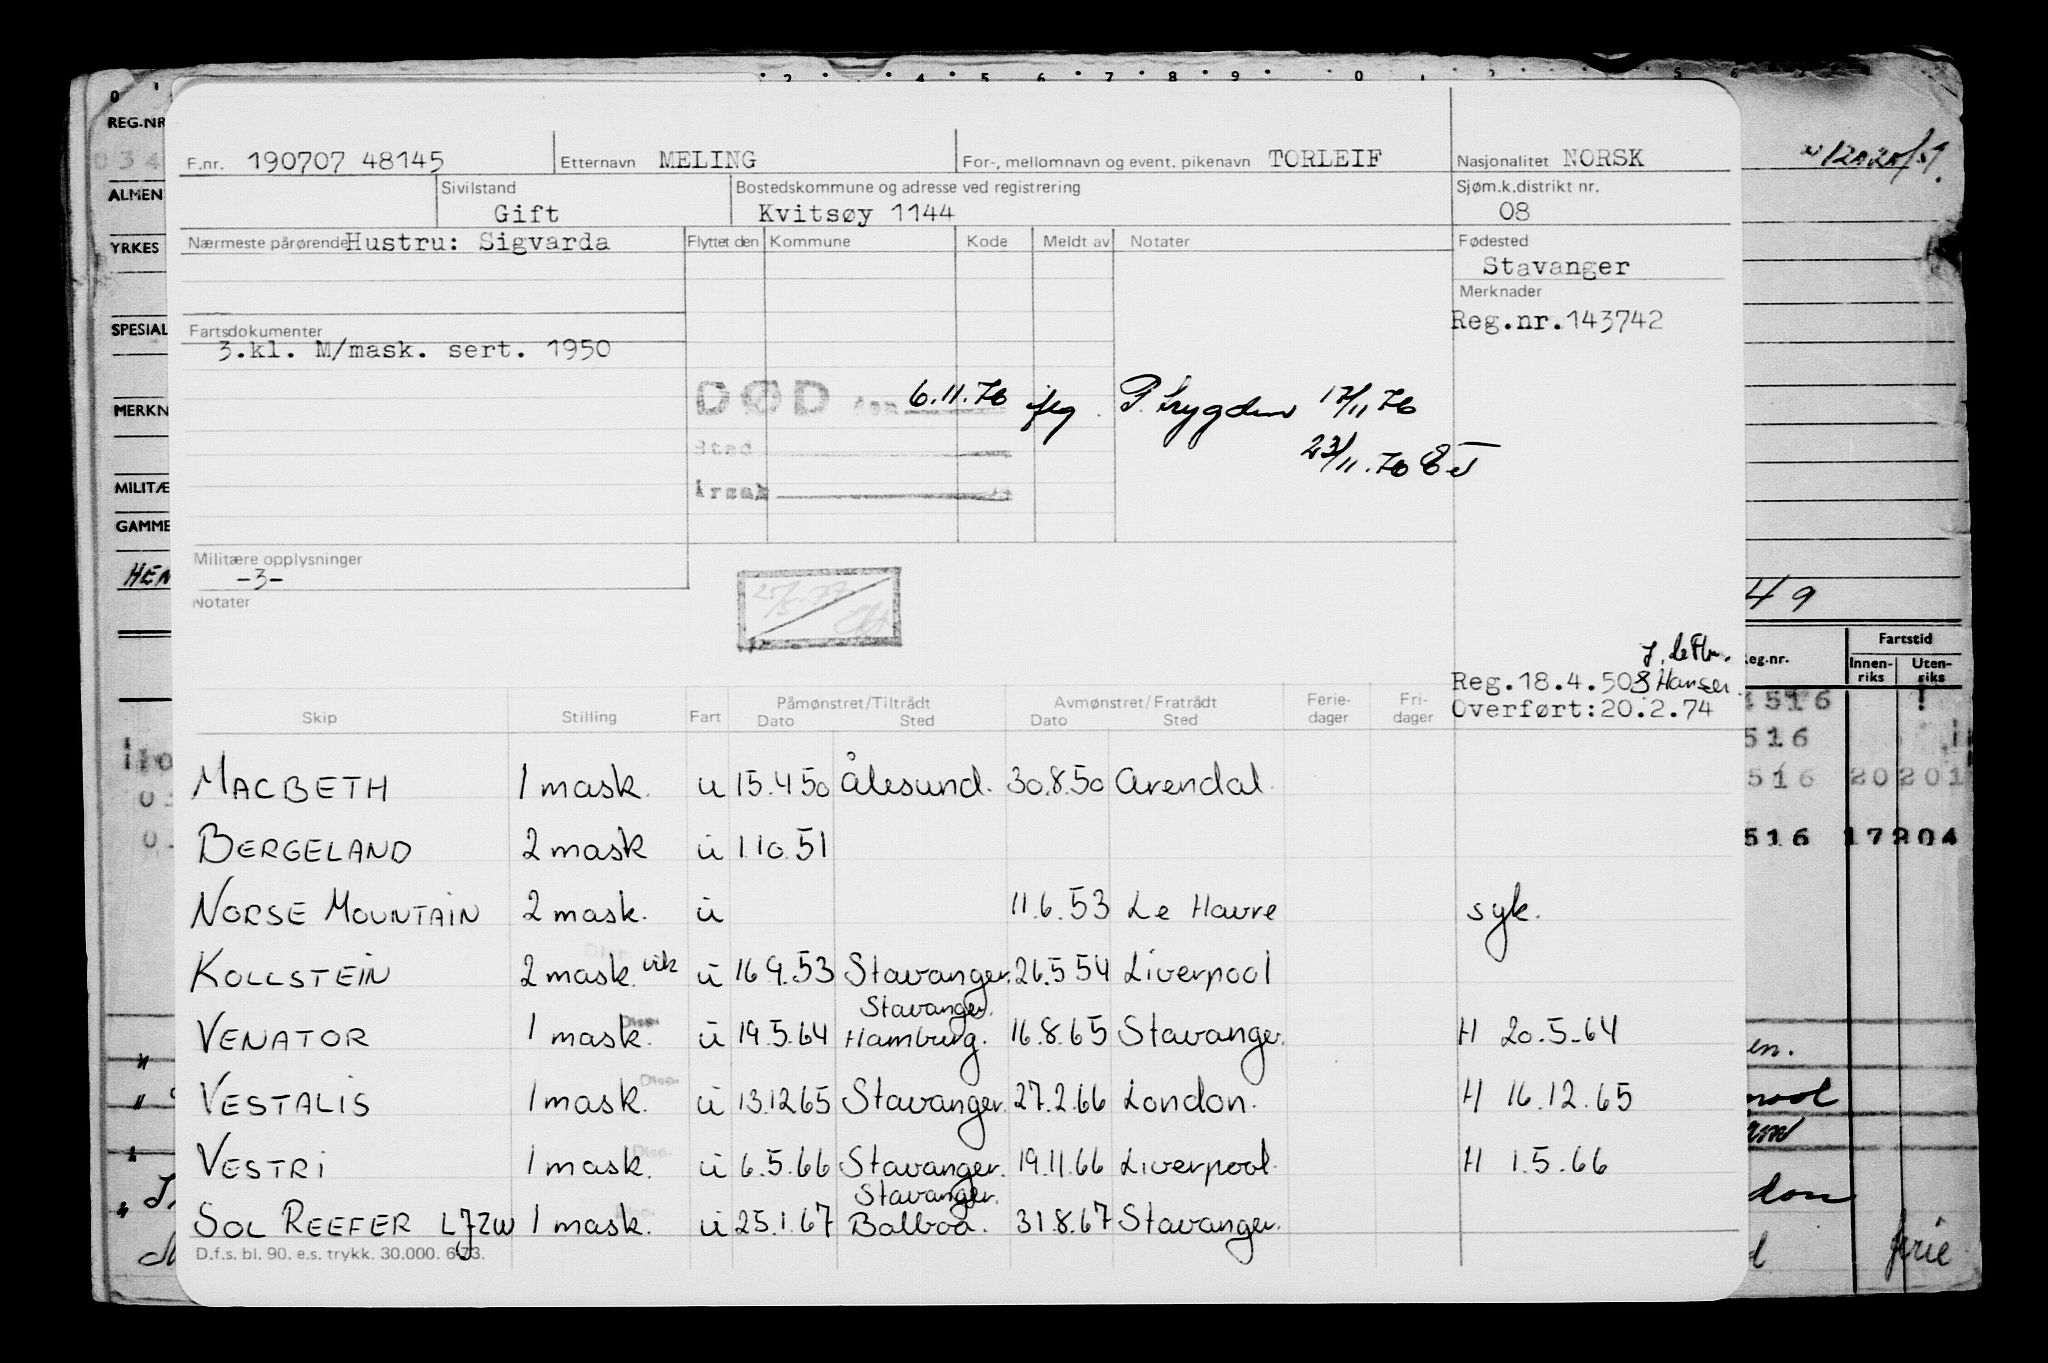 REG.NR
034
ALMEN
YRKES
SPESIAL
MERKN
MILITÆ
GAMME
HEN
F.nr. 190707 48145 Etternavn MELING For-, mellomnavn og event. pikenavn TORLEIF Nasjonalitet NORSK
Sivilstand Bostedskommune og adresse ved registrering Sjøm.k.distrikt nr.
Gift Kvitsøy 1144 08
Nærmeste pårørende Hustru: Sigvarda Flyttet den Kommune Kode Meldt av Notater Fødested
Stavanger
Merknader
Reg.nr.143742
Fartsdokumenter
3.kl. M/mask. sert. 1950
DØD den 6.11.76 P. trygden 17/11 76
Sted 23/11.76
Årsak
Militære opplysninger
-3-
Notater
49
Reg.18.4.50 Hansen
Overført:20.2.74
Skip Stilling Fart Påmønstret/Tiltrådt Dato Sted Avmønstret/Fratrådt Dato Sted Ferie-dager Fri-dager
MACBETH 1 mask. u 15.4 50 Ålesund. 30.8.50 Arendal.
BERGELAND 2 mask u 1.10.51
NORSE MOUNTAIN 2 mask. u 11.6.53 Le Havre syk.
KOLLSTEIN 2 mask. vik u 16 9.53 Stavanger. 26.5 54 Liverpool
VENATOR 1 mask. u 19.5.64 Stavanger. Hamburg. 16.8.65 Stavanger. H 20.5.64
VESTALIS 1 mask. u 13.12 65 Stavanger. 27.2.66 London. H 16.12.65
VESTRI 1 mask. u 6.5.66 Stavanger. 19.11.66 Liverpool. H 1.5.66
SOL REEFER LJZW 1 mask. u 25.1.67 Stavanger. Balboa. 31.8.67 Stavanger.
D.f.s. bl. 90. e.s. trykk. 30.000. 6.73.
eg.nr. Fartstid
Innen-riks Uten-riks
4516
516
516 20201
516 17204
en.
don
ferie